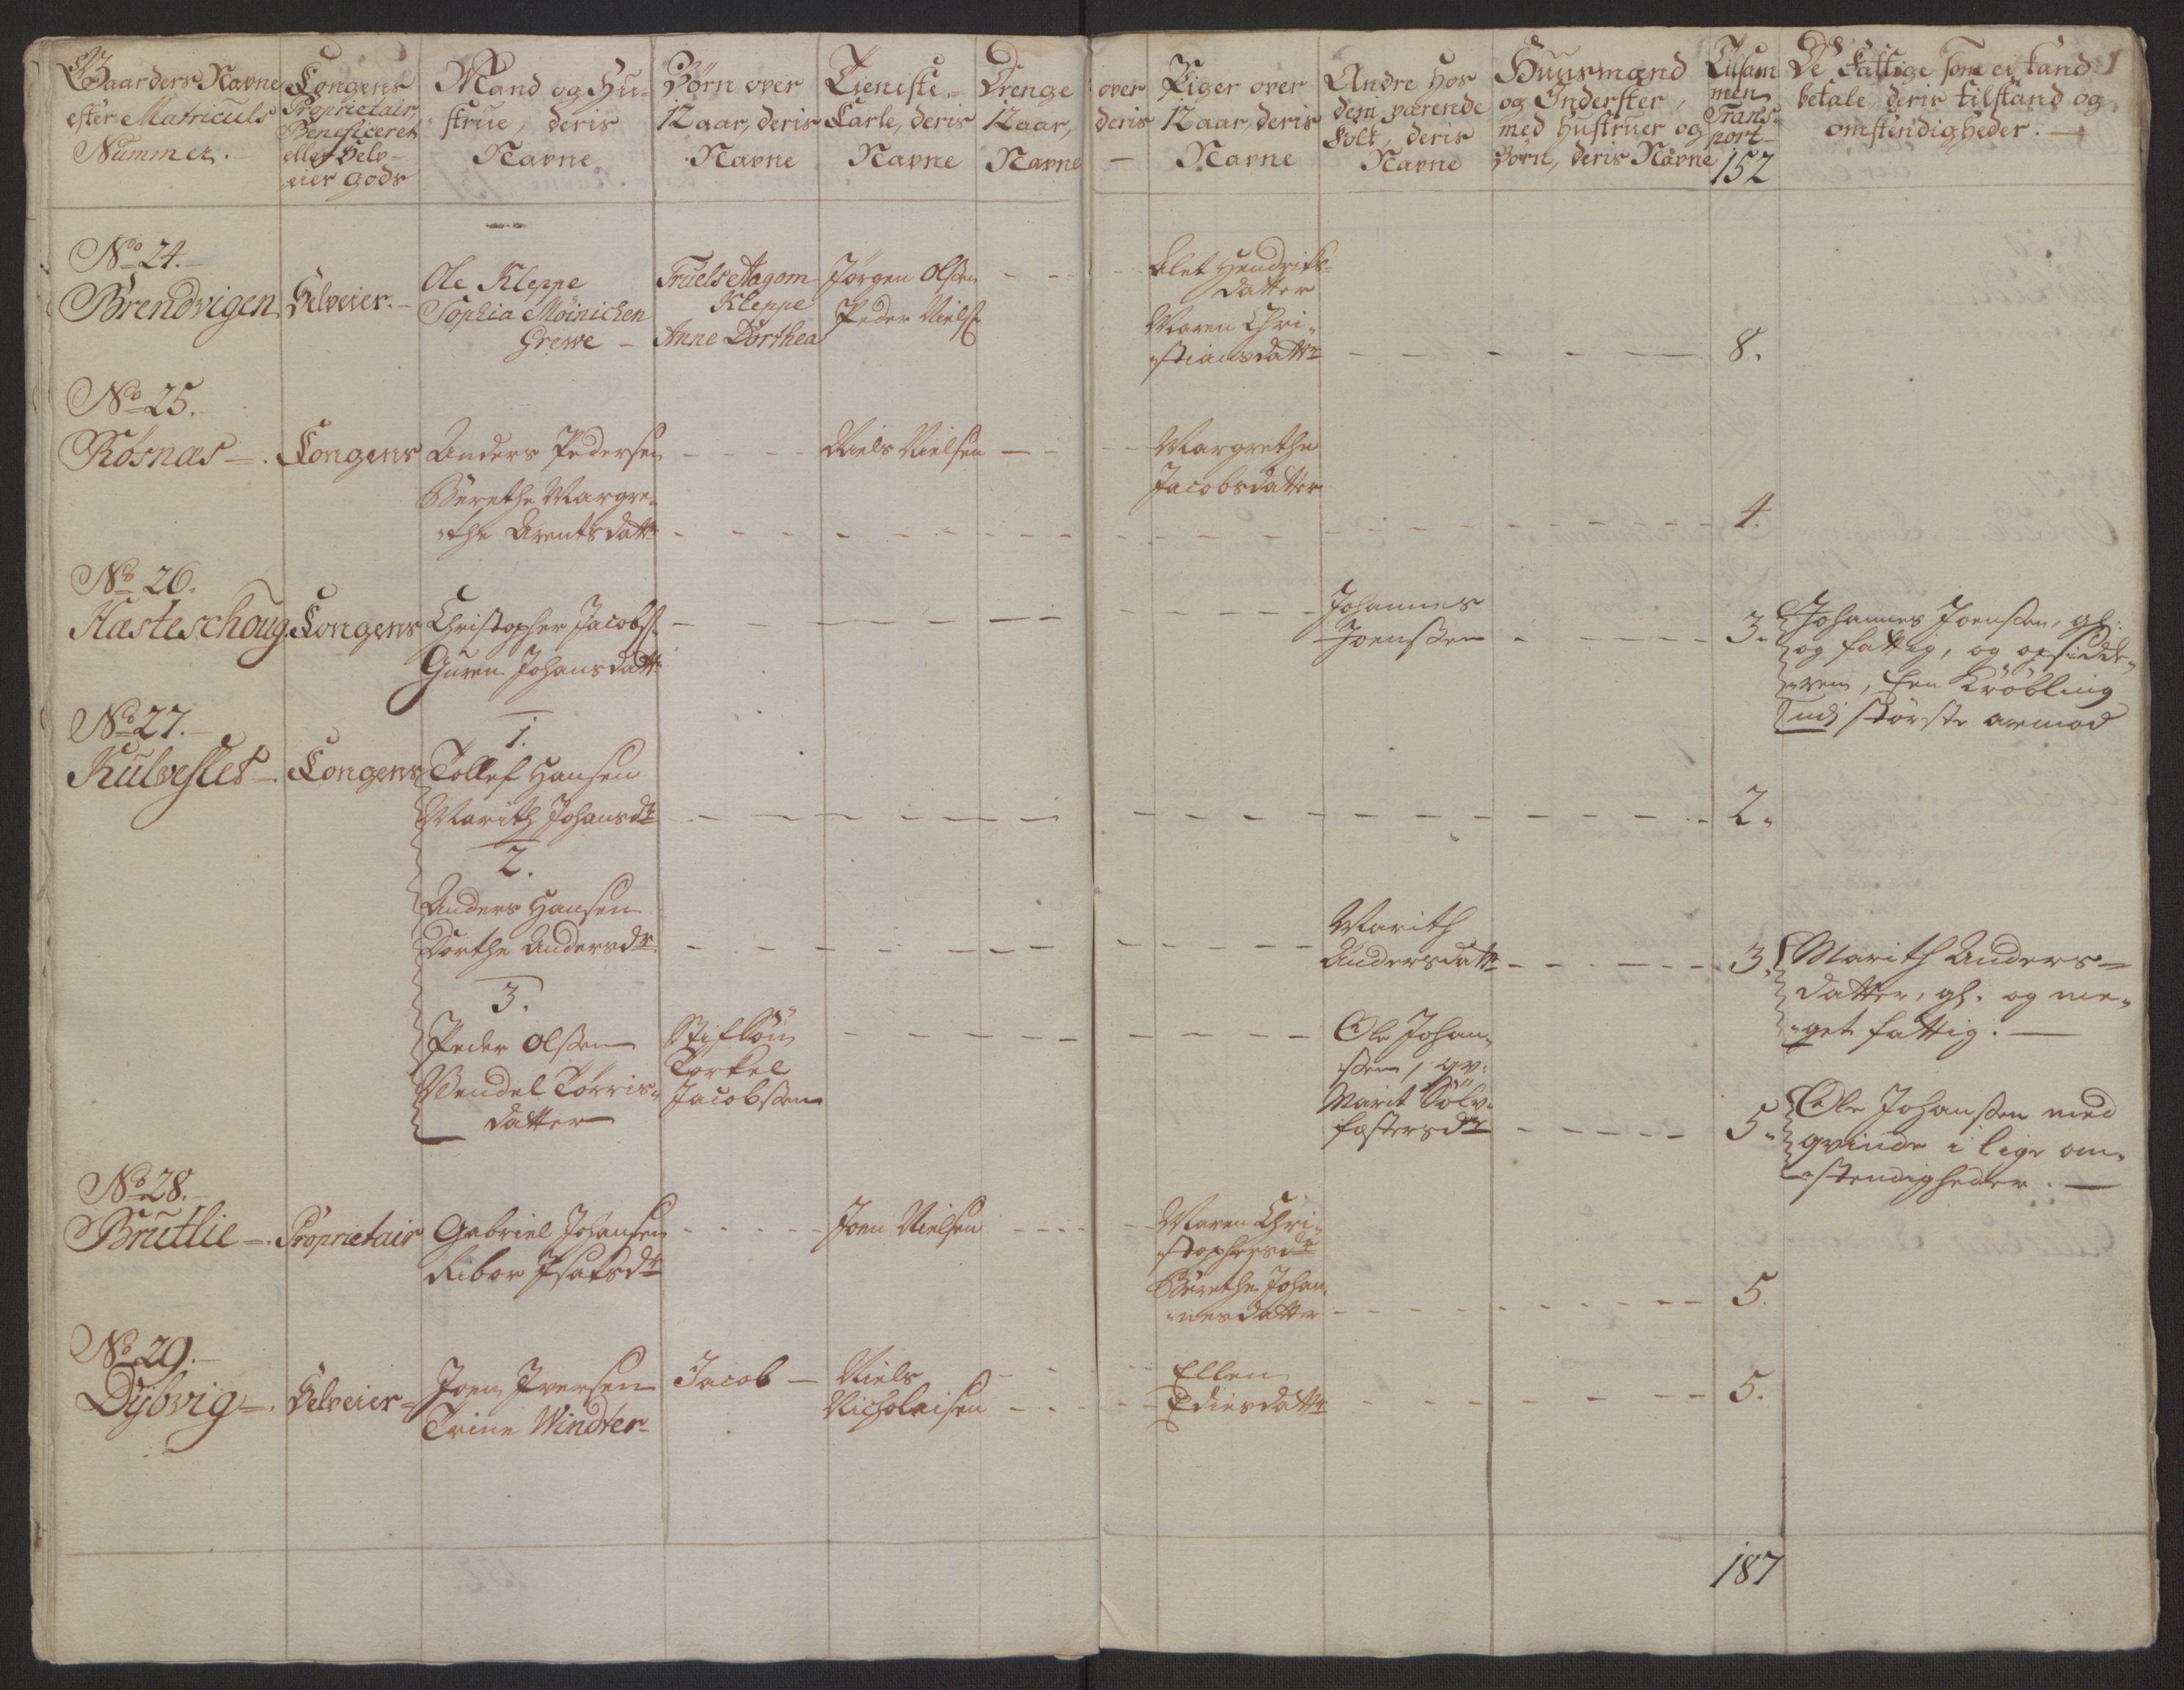 Gaarders Navne
efter Matriculs
Nummer.
Congens
Proprietair,
Beneficeret
eller Selv-
eier Gods
Mand og Hu-
strue, deris
Navne
Børn over
12 aar, deris
Navne
Tieniste-
Carle, deris
Navne
Drenge over
12 aar, deris
Navne —
Piger over
12 aar, deris
Navne
Andre hos
dem værende
Folk, deris
Navne
Huusmænd
og Inderster,
med Hustruer og
Børn, deris Navne
Tilsam
men
Trans-
port-
152
De Fattige som ei kand
betale, deris tilstand og
omstendigheder. —
No 24.
Brendvigen
Selveier. -
Ole Kleppe
Sophia Möinichen
Grewe -
Truels Aagom
Kleppe
Anne Dorthea
Jörgen Olsen
Peder Niels
Hendriks-
datter
Maren Chri-
stiansdattr
8.
No 25.
Rösnæs -.
Congens
Anders Pedersen
Berethe Margre-
the Arentsdattr
Niels Nielsen
Margrethe
Jacobsdatter
4.
No 26.
Hæsteschoug.
Congens
Christopher Jacobs
Guren Johansdattr
Johannes
Joenssen
3.
Johannes Joenssen, gl:
og fattig, og opsidde-
ren, Een Kröbling
udj störste armod
No 27.
Kulveslet -.
Congens
1.
Tollef Hansen
Marith Johansdr
2.
2.
Anders Hansen
Dorthe Andersdr
Marith
Andersdattr
3.
Marith Anders-
datter, gl. og me-
get fattig. —
3.
Peder Olssen
Wendel Törris-
datter
Stifsön
Torkel
Jacobssen
Ole Johan-
ssen, qv.
Marit Sölv-
festersdr
5.
Ole Johanssen med
qvinde i lige om-
stendigheder. —
No 28.
Brutlie -.
Proprietair
Gabriel Johansen
Ribor Isaksdr
Joen Nielsen
Maren Chri-
stophersdr
Berethe Johan-
nesdatter
5.
No 29.
Dybvig -.
Selveier -
Joen Iversen
Trine Windter
Jacob -
Niels
Nicholaisen
Ellen
Ediesdattr
5.
187